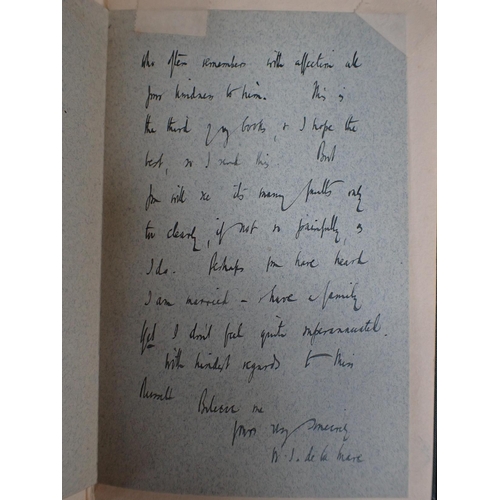 who often remembers with affection all
your kindness to him. This is
the third of my books, & I hope the
best, so I send this. But
you will see its many faults only
too clearly, if not so painfully, as
I do. Perhaps you have heard
I am married – & have a family
Yet I don't feel quite superannuated.
With kindest regards to Miss
Russell Believe me
yours very sincerely
W. J. de la Mare